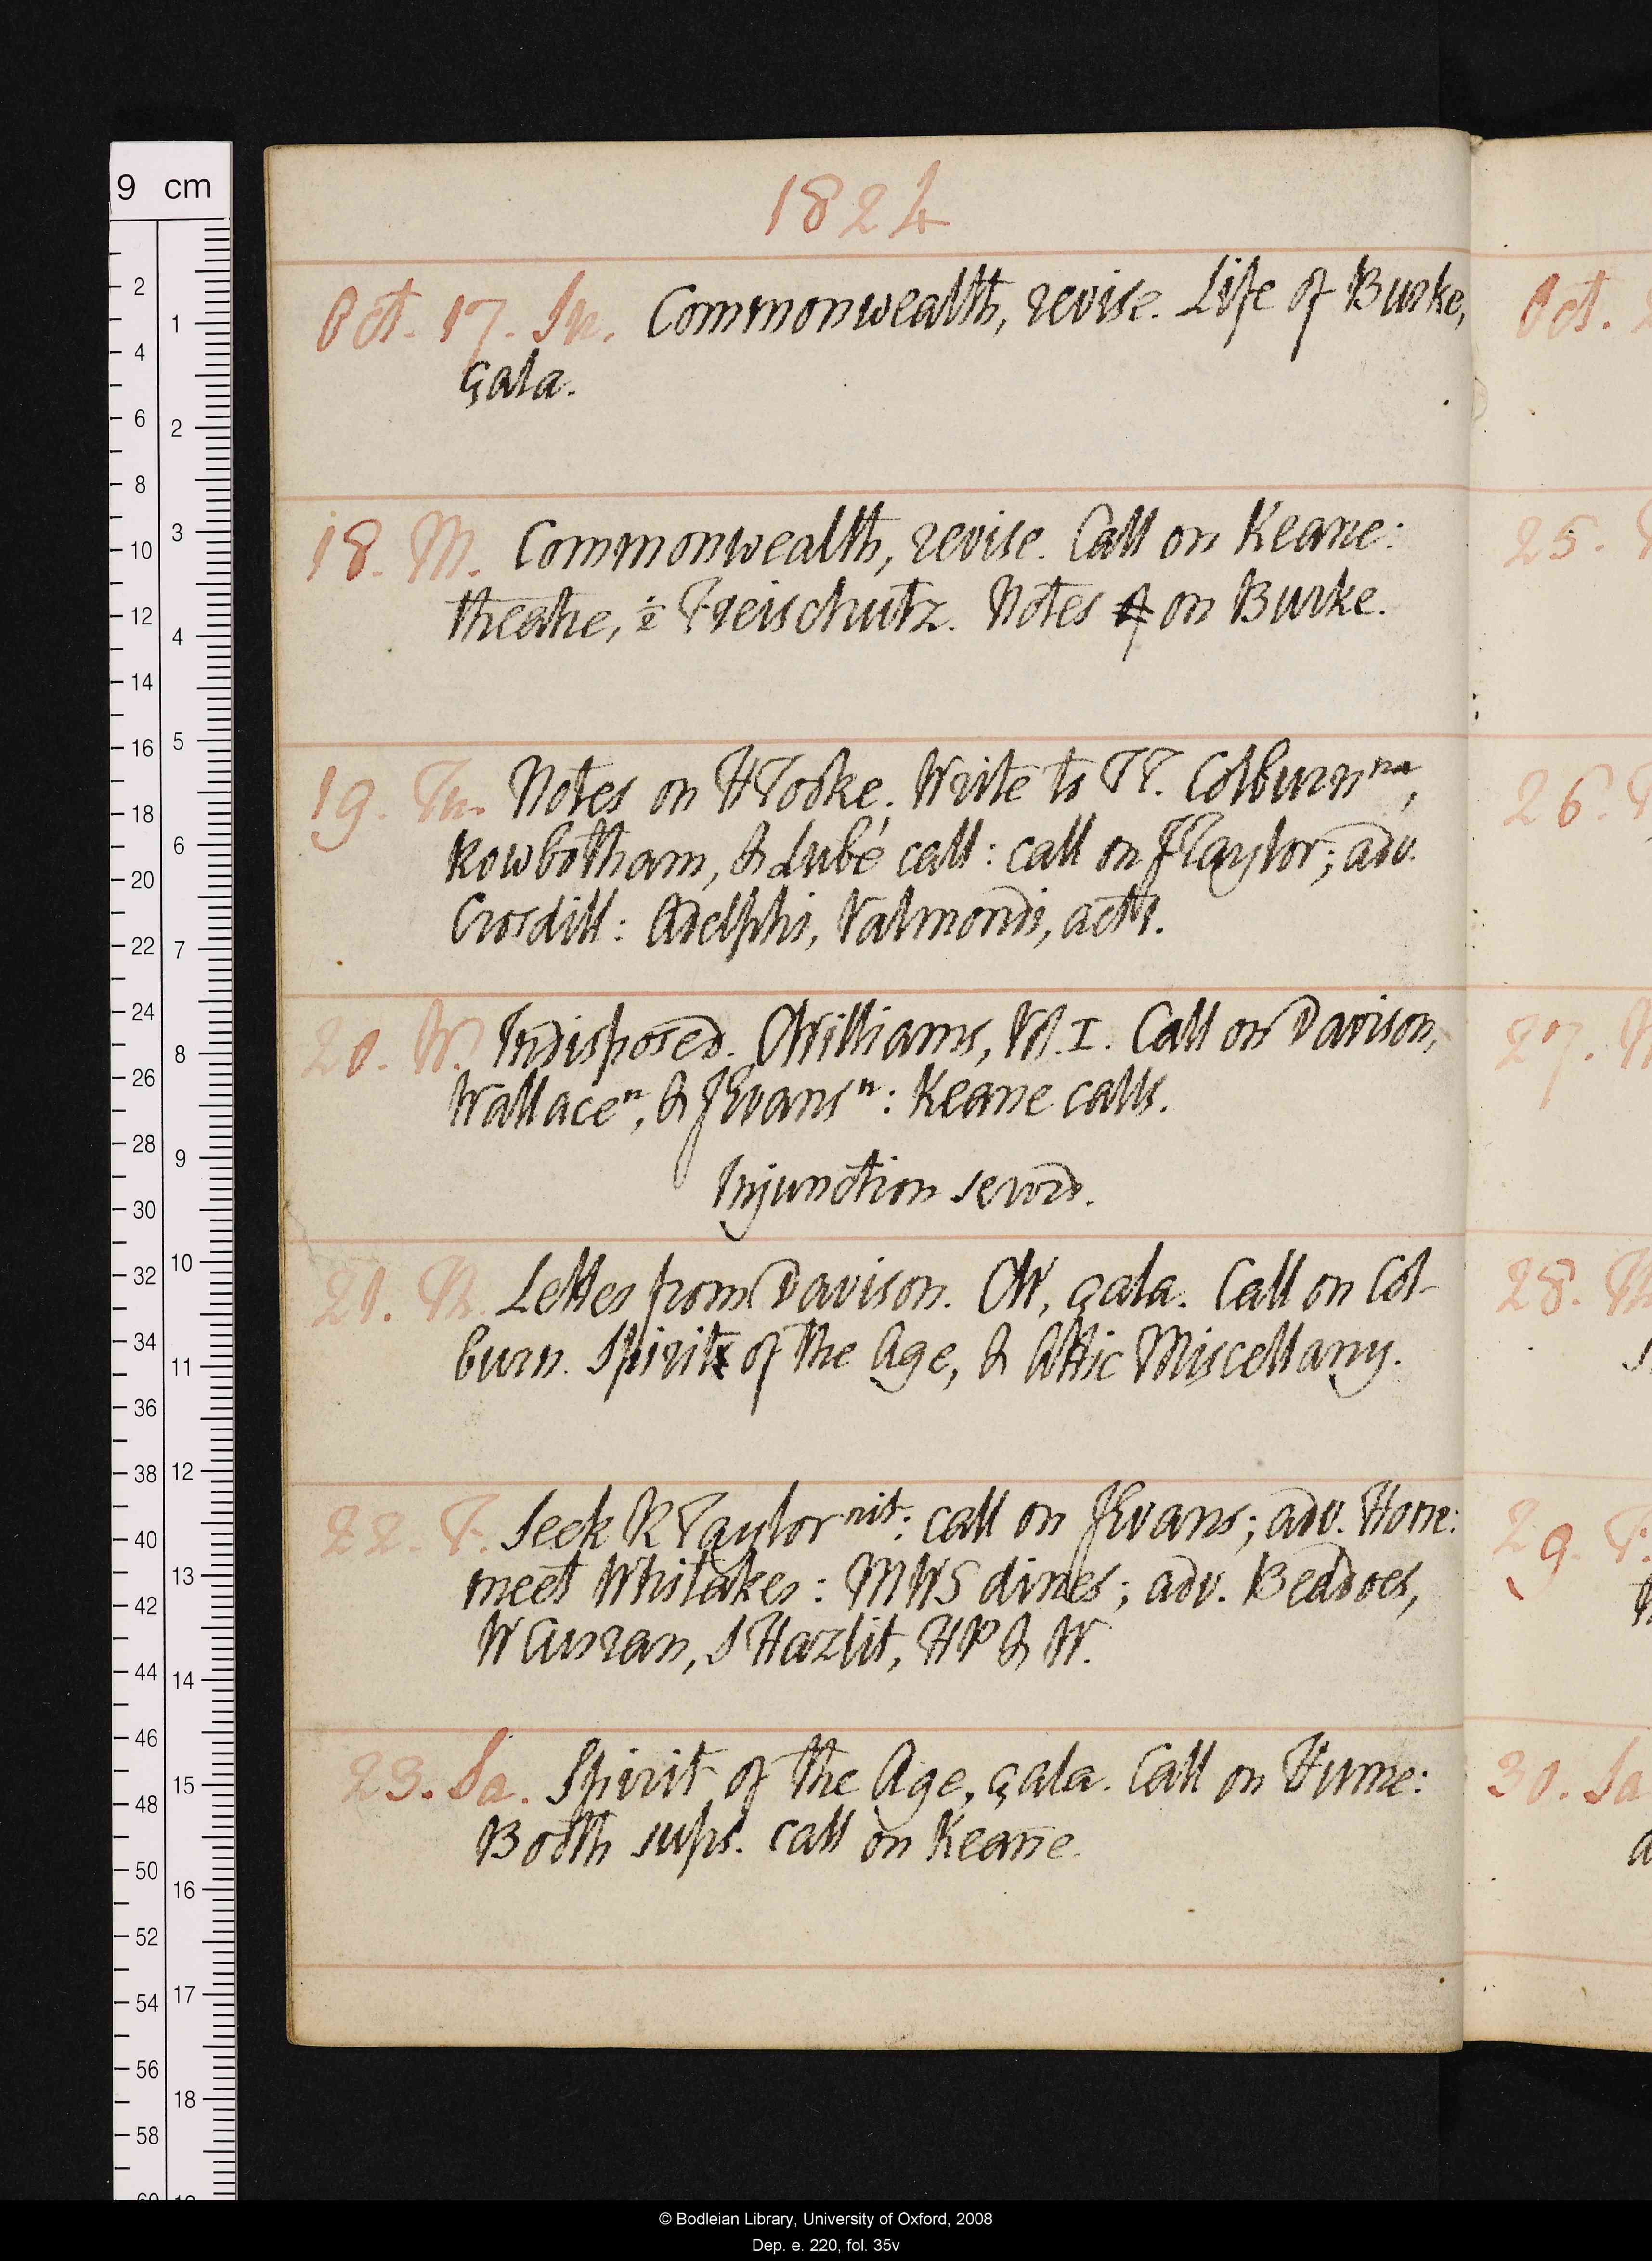 1824
Oct. 17. Su. Commonwealth, revise. Life of Burke,
çala.
18. M. Commonwealth, revise. Call on Keane:
theatre, Freischutz. Notes on Burke.
19. Tu. Notes on HTooke. Write to TT. Colburn na,
Rowbotham, & Lubé call: call on JTaylor; adv.
Crosdill: Adelphi, Valmondi, act 1.
20. W. Indisposed. CWilliams, Vol. I. Call on Davison,
Wallace n, & JEvans n: Keane calls.
Injunction servd.
21. Th. Letter from Davison. CW, çala. Call on Col-
burn. Spirit of the Age, & Attic Miscellany.
22. F. Seek RTaylor nit: call on JEvans; adv. Hone:
meet Whitaker: MWS dines; adv. Beddoes,
WCurran, SHazlit, HP & W.
23. Sa. Spirit of the Age, çala. Call on Hume:
Booth sups. call on Keane.
Oct.
25.
26.
27.
28.
29.
30. Sa
9 cm
2
4
6
8
10
12
14
16
18
20
22
24
26
28
30
32
34
36
38
40
42
44
46
48
50
52
54
56
58
1
2
3
4
5
6
7
8
9
10
11
12
13
14
15
16
17
18
© Bodleian Library, University of Oxford, 2008
Dep. e. 220, fol. 35v